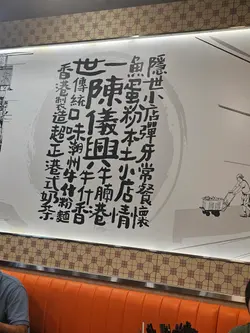 隱世小店彈牙常餐懷
魚蛋粉本土小店情
世一陳儀興、牛腩港
牛什香
傳統口味潮州牛什粉麵
香港製造超正港式奶茶